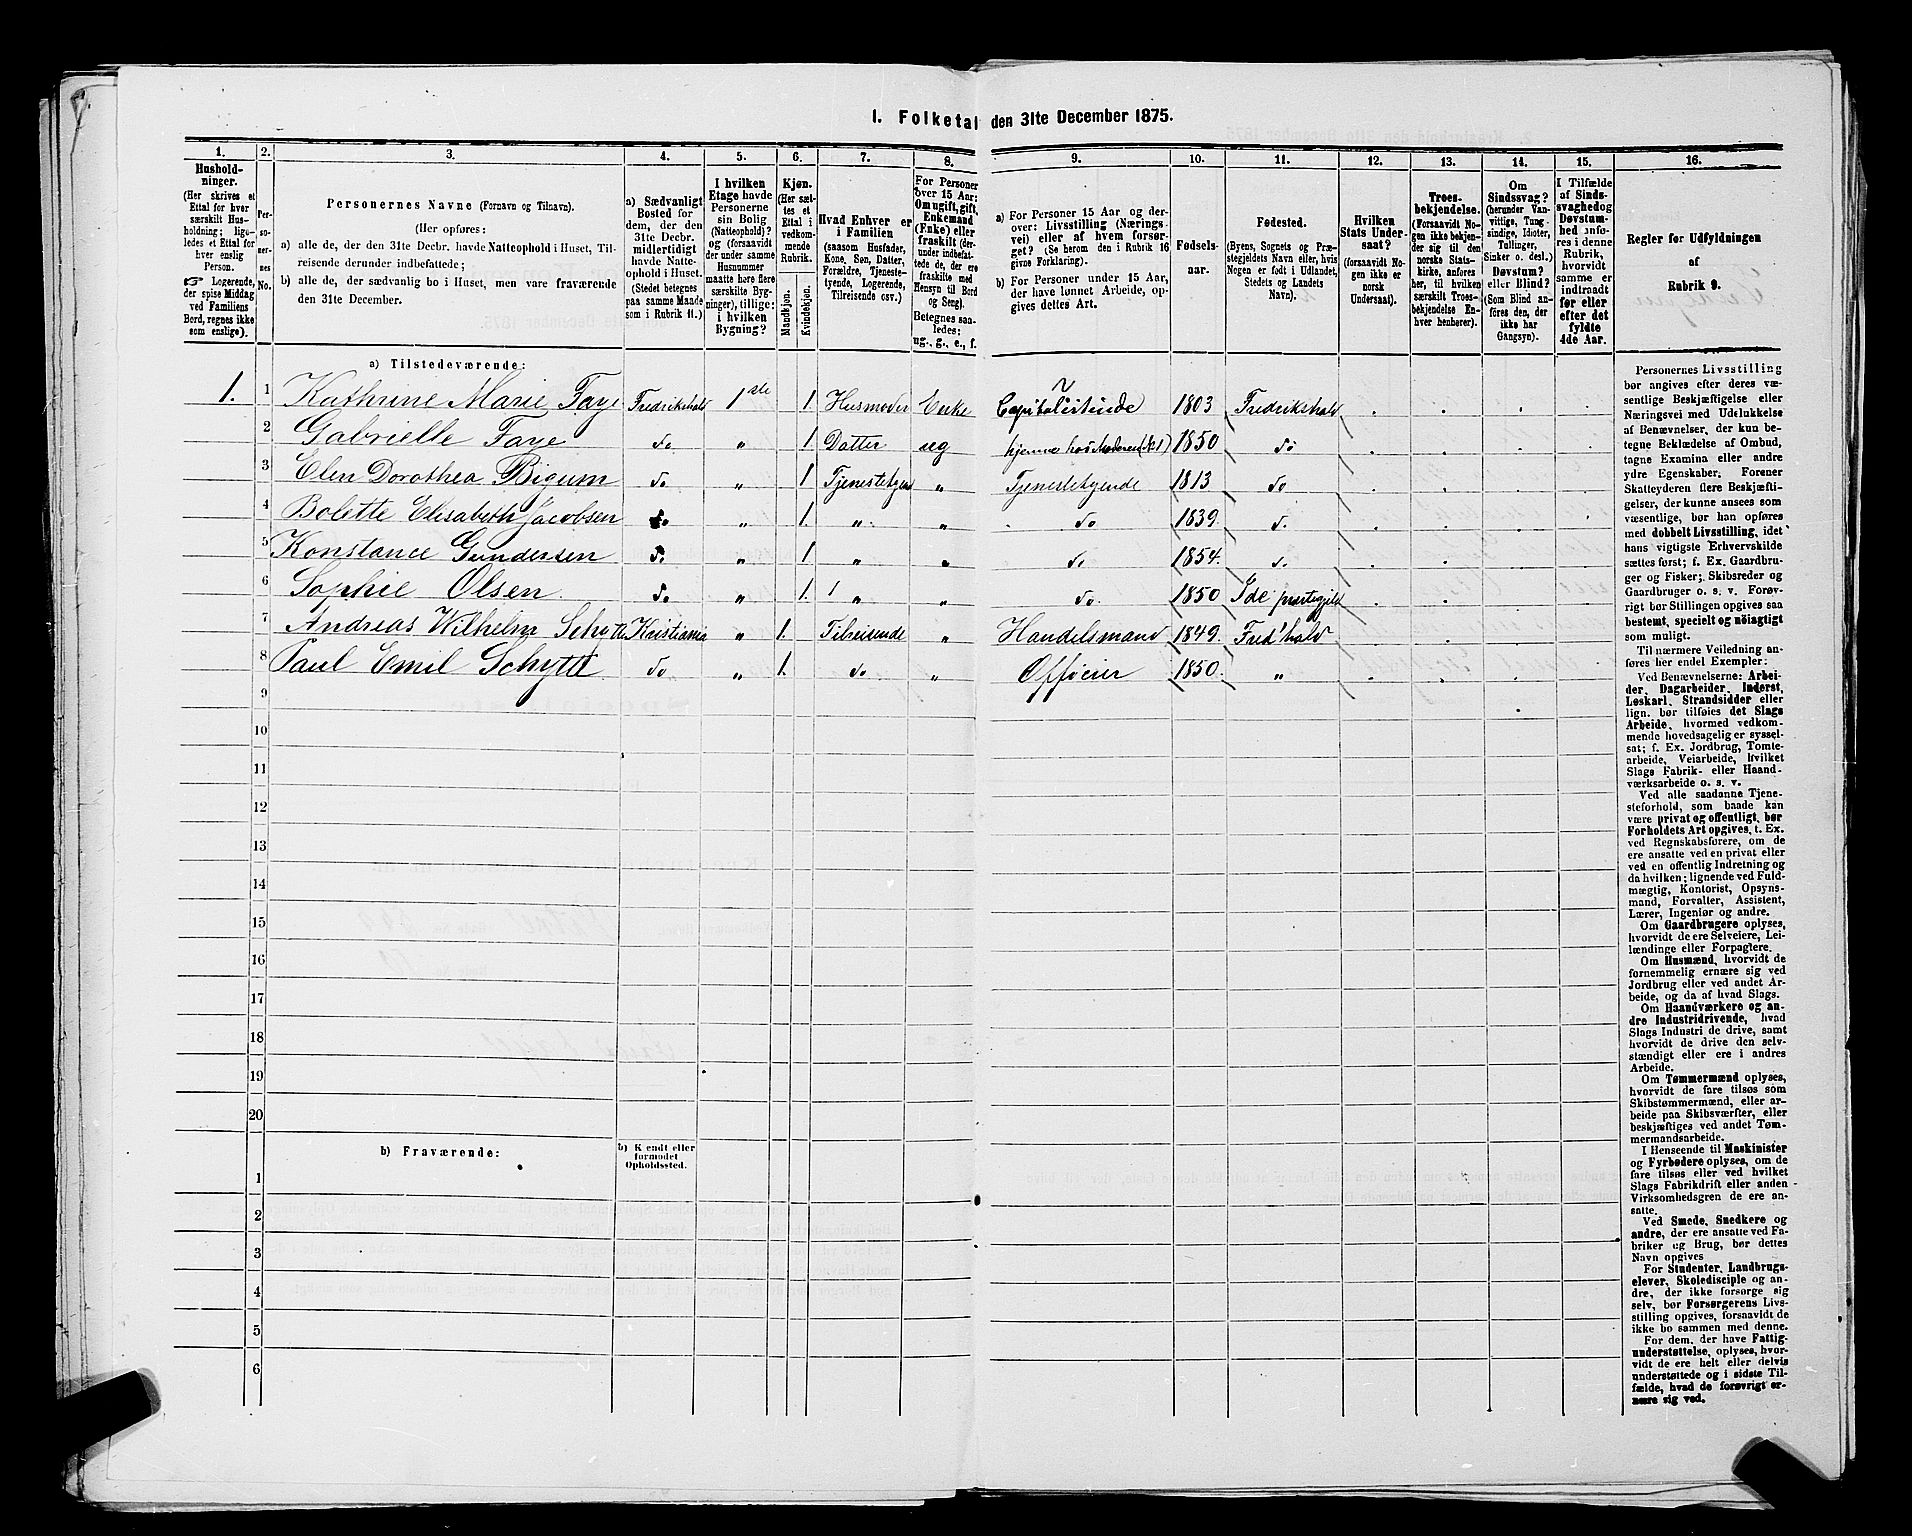 I. Folketal den 31te December 1875.
1. 2. 3. 4. 5. 6. 7. 8. 9. 10. 11. 12. 13. 14. 15. 16.
Hushold-
ninger.
(Her skrives et
Ettal for hver
særskilt Hus-
holdning; lige-
ledes et Ettal for
hver enslig
Person.
☞ Logerende,
der spise Middag
ved Familiens
Bord, regnes ikke
som enslige).
Per-
so-
ner-
nes
No.
Personernes Navne (Fornavn og Tilnavn).
(Her opføres:
a) alle de, der den 31te Decbr. havde Natteophold i Huset, Til-
reisende derunder indbefattede;
b) alle de, der sædvanlig bo i Huset, men vare fraværende
den 31te December.
a) Sædvanligt
Bosted for
dem, der den
31te Decbr.
midlertidigt
havde Natte-
ophold i Huset.
(Stedet betegnes
paa samme Maade
som i Rubrik 11.)
I hvilken
Etage havde
Personerne
sin Bolig
(Natteophold)?
og (forsaavidt
der under samme
Husnummer
maatte høre flere
særskilte Byg-
ninger), tillige:
i hvilken
Bygning?
Kjøn.
(Her sæt-
tes et
Ettal i
vedkom-
mende
Rubrik.
Mandkjøn.
Kvindekjøn.
Hvad Enhver er
i Familien
(saasom Husfader,
Kone, Søn, Datter,
Forældre, Tjeneste-
tyende, Logerende,
Tilreisende osv.)
For Personer
over 15 Aar:
Om ugift, gift,
Enkemand
(Enke) eller
fraskilt (der-
under indbefat-
tede de, der ere
fraskilte med
Hensyn til Bord
og Seng).
Betegnes saa-
ledes:
ug., g., e., f.
a) For Personer 15 Aar og der-
over: Livsstilling (Nærings-
vei) eller af hvem forsør-
get? (Se herom den i Rubrik 16
givne Forklaring).
b) For Personer under 15 Aar,
der have lønnet Arbeide, op-
gives dettes Art.
Fødsels-
aar.
Fødested.
(Byens, Sognets og Præ-
stegjeldets Navn eller, hvis
Nogen er født i Udlandet,
Stedets og Landets
Navn).
Hvilken
Stats Under-
saat?
(forsaavidt No-
gen ikke er
norsk
Undersaat).
Troes-
bekjendelse.
(Forsaavidt No-
gen ikke bekjen-
der sig til den
norske Stats-
kirke, anføres
her, til hvilken
særskilt Troes-
bekjendelse En-
hver henhører).
Om
Sindssvag?
(herunder Van-
vittige, Tung-
sindige, Idioter,
Tullinger,
Sinker o. desl.)
Døvstum?
eller Blind?
(Som Blind an-
føres den, der
ikke har
Gangsyn).
I Tilfælde
af Sinds-
svaghed og
Døvstum-
hed anfø-
res i denne
Rubrik,
hvorvidt
samme er
indtraadt
før eller
efter det
fyldte
4de Aar.
Regler før Udfyldningen
af
Rubrik 9.
a) Tilstedeværende:
1. 1 Kathrine Marie Faye Fredrikshald 1ste 1. Husmoder Enke Capitalistinde 1803 Fredrikshald
2 Gabrielle Faye do " 1. Datter ug hjemme hos Moderen (N.1) 1850 do
3 Elen Dorothea Bigum do " 1 Tjenestetyende " Tjenestetyende 1813 do
4 Bolette Elisabeth Jacobsen do " 1. " " do 1839. do
5 Konstance Gundersen do " 1 " " do 1854. do
6 Sophie Olsen do " 1. " do 1850 Ide præstegjeld
7 Andreas Wilhelm Schøtt Kristiania " 1. Tilreisende " Handelsmand 1849. Fred'hald
8 Paul Emil Schytte do " 1. do " Officier 1850. "
9
10
11
12
13
14
15
16
17
18
19
20
b) Fraværende:
b) Kjendt eller
formodet
Opholdssted.
1
2
3
4
5
6
Personernes Livsstilling
bør angives efter deres væ-
sentlige Beskjæftigelse eller
Næringsvei med Udelukkelse
af Benævnelser, der kun be-
tegne Beklædelse af Ombud,
tagne Examina eller andre
ydre Egenskaber. Forener
Skatteyderen flere Beskjæfti-
gelser, der kunne ansees som
væsentlige, bør han opføres
med dobbelt Livsstilling, idet
hans vigtigste Erhvervskilde
sættes først; f. Ex. Gaardbru-
ger og Fisker; Skibsreder og
Gaardbruger o. s. v. Forøv-
rigt bør Stillingen opgives saa
bestemt, specielt og nøiagtigt
som muligt.
Til nærmere Veiledning an-
føres her endel Exempler:
Ved Benævnelserne: Arbei-
der, Dagarbeider, Inderst,
Løskarl, Strandsidder eller
lign. bør tilføies det Slags
Arbeide, hvormed vedkom-
mende hovedsagelig er syssel-
sat; f. Ex. Jordbrug, Tomte-
arbeide, Veiarbeide, hvilket
Slags Fabrik- eller Haand-
værksarbeide o. s. v.
Ved alle saadanne Tjene-
steforhold, som baade kan
være privat og offentligt, bør
Forholdets Art opgives, t. Ex.
ved Regnskabsførere, om de
ere ansatte ved en privat eller
ved en offentlig Indretning og
da hvilken; lignende ved Fuld-
mægtig, Kontorist, Opsyns-
mand, Forvalter, Assistent,
Lærer, Ingeniør og andre.
Om Gaardbrugere oplyses,
hvorvidt de ere Selveiere, Lei-
lændinge eller Forpagtere.
Om Husmænd, hvorvidt de
fornemmelig ernære sig ved
Jordbrug eller ved andet Ar-
beide, og da af hvad Slags.
Om Haandværkere og an-
dre Industridrivende, hvad
Slags Industri de drive, samt
hvorvidt de drive den selv-
stændigt eller ere i andres
Arbeide.
Om Tømmermænd oplyses,
hvorvidt de fare tilsøs som
Skibstømmermænd, eller ar-
beide paa Skibsværfter, eller
beskjæftiges ved andet Tøm-
mermandsarbeide.
I Henseende til Maskinister
og Fyrbødere oplyses, om de
fare tilsøs eller ved hvilket
Slags Fabrikdrift eller anden
Virksomhedsgren de ere an-
satte.
Ved Smede, Snedkere og
andre, der ere ansatte ved Fa-
briker og Brug, bør dettes
Navn opgives
For Studenter, Landbrugs-
elever, Skoledisciple og an-
dre, der ikke forsørge sig
selv, bør Forsørgerens Livs-
stilling opgives, forsaavidt de
ikke bo sammen med denne.
For dem, der have Fattig-
understøttelse, oplyses, hvor-
vidt de ere helt eller delvis
understøttede og i sidste Til-
fælde, hvad de forøvrigt er-
nære sig ved.